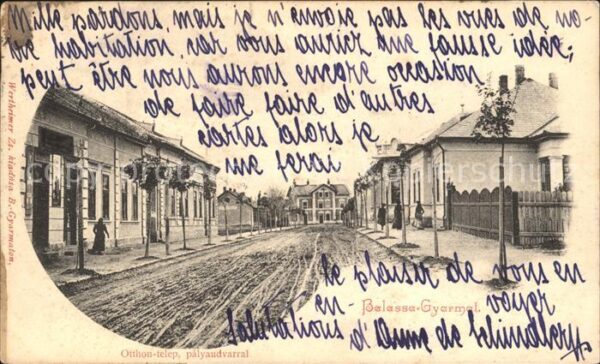 Mille pardons, mais je n'envoie pas les vues de no-
tre habitation, car vous auriez une fausse idée;
peut être nous aurons encore occasion
de faire faire d'autres
cartes alors je
me ferai
le plaisir de vous en
en- voyer
Salutations d'Anne de Schindlery
Balassa-Gyarmat.
Otthon-telep, pályaudvarral
Wertheimer Zs. kiadása B.-Gyarmaton.